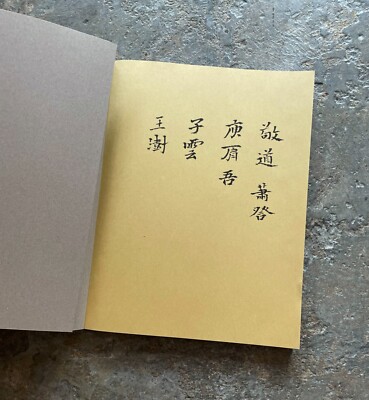 敬道 蕭
庾肩吾
子雲
王澍